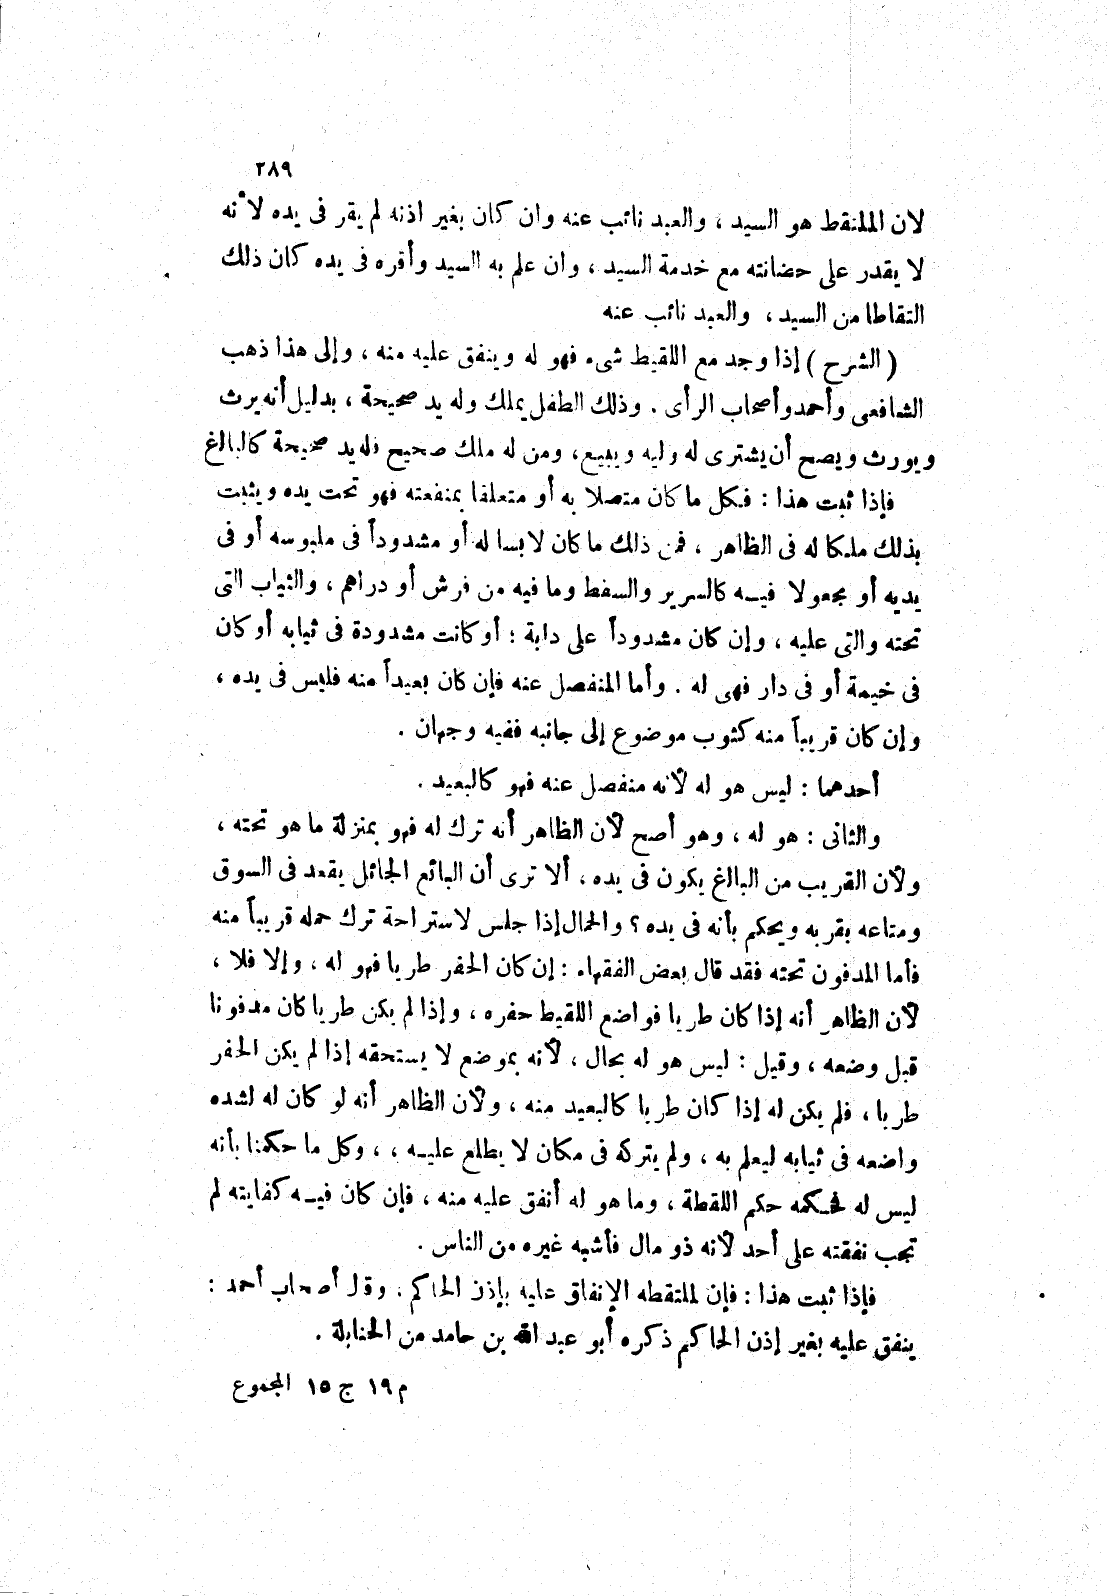 ٢٨٩
لان الملتقط هو السيد ، والعبد نائب عنه وان كان بغير اذنه لم يقر فى يده لأنه
لا يقدر على حضانته مع خدمة السيد ، وان علم به السيد وأقره فى يده كان ذلك
التقاطا من السيد ، والعبد نائب عنه
( الشرح ) إذا وجد مع اللقيط شىء فهو له وينفق عليه منه ، وإلى هذا ذهب
الشافعى وأحمد وأصحاب الرأى . وذلك الطفل يملك وله يد صحيحة ، بدليل أنه يرث
ويورث ويصح أن يشترى له وليه ويبيع ، ومن له ملك صحيح فله يد صحيحة كالبالغ
فإذا ثبت هذا : فكل ما كان متصلا به أو متعلقا بمنفعته فهو تحت يده ويثبت
بذلك ملكا له فى الظاهر ، فمن ذلك ما كان لابسا له أو مشدوداً فى ملبوسه أو فى
يديه أو مجعولا فيه كالسرير والسفط وما فيه من فرش أو دراهم ، والثياب التى
تحته والتى عليه ، وإن كان مشدوداً على دابة ؛ أو كانت مشدودة فى ثيابه أو كان
فى خيمة أو فى دار فهى له . وأما المنفصل عنه فإن كان بعيداً منه فليس فى يده ،
وإن كان قريباً منه كثوب موضوع إلى جانبه ففيه وجهان .
أحدهما : ليس هو له لأنه منفصل عنه فهو كالبعيد .
والثانى : هو له ، وهو أصح لأن الظاهر أنه ترك له فهو بمنزلة ما هو تحته ،
ولأن القريب من البالغ يكون فى يده ، ألا ترى أن البائع الجائل يقعد فى السوق
ومتاعه بقربه ويحكم بأنه فى يده ؟ والحمال إذا جلس لاستراحة ترك حمله قريباً منه
فأما المدفون تحته فقد قال بعض الفقهاء : إن كان الحفر طريا فهو له ، وإلا فلا ،
لأن الظاهر أنه إذا كان طريا فواضع اللقيط حفره ، وإذا لم يكن طريا كان مدفونا
قبل وضعه ، وقيل : ليس هو له بحال ، لأنه بموضع لا يستحقه إذا لم يكن الحفر
طريا ، فلم يكن له إذا كان طريا كالبعيد منه ، ولأن الظاهر أنه لو كان له لشده
واضعه فى ثيابه ليعلم به ، ولم يتركه فى مكان لا يطلع عليه ، ، وكل ما حكمنا بأنه
ليس له فحكمه حكم اللقطة ، وما هو له أنفق عليه منه ، فإن كان فيه كفايته لم
تجب نفقته على أحد لأنه ذو مال فأشبه غيره من الناس .
فإذا ثبت هذا : فإن لملتقطه الإنفاق عليه بإذن الحاكم ، وقال أصحاب أحمد :
ينفق عليه بغير إذن الحاكم ذكره أبو عبد الله بن حامد من الحنابلة .
م ١٩ ج ١٥ المجموع